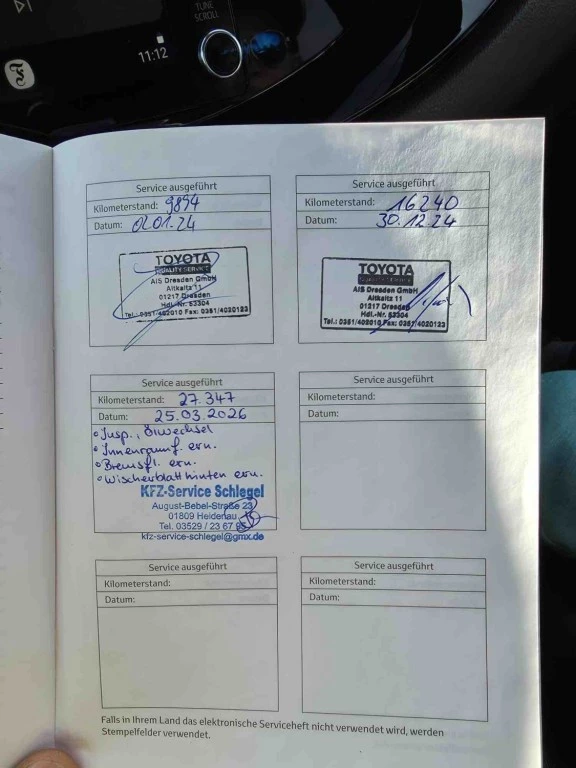 TUNE
SCROLL
11:12
Service ausgeführt
Kilometerstand: 9894
Datum: 02.01.24
TOYOTA
QUALITY SERVICE
AIS Dresden GmbH
Altkaitz 11
01217 Dresden
Hdl.-Nr. 53304
Tel.: 0351/402010 Fax: 0351/4020123
Service ausgeführt
Kilometerstand: 16240
Datum: 30.12.24
TOYOTA
AIS Dresden GmbH
Altkaitz 11
01217 Dresden
Hdl.-Nr. 53304
Tel.: 0351/402010 Fax: 0351/4020123
Service ausgeführt
Kilometerstand: 27.347
Datum: 25.03.2026
Insp., Ölwechsel
Innenraumf. ern.
Bremsfl. ern.
Wischerblatt hinten ern.
KFZ-Service Schlegel
August-Bebel-Straße 23
01809 Heidenau
Tel. 03529 / 23 67
kfz-service-schlegel@gmx.de
Service ausgeführt
Kilometerstand:
Datum:
Service ausgeführt
Kilometerstand:
Datum:
Service ausgeführt
Kilometerstand:
Datum:
Falls in Ihrem Land das elektronische Serviceheft nicht verwendet wird, werden
Stempelfelder verwendet.